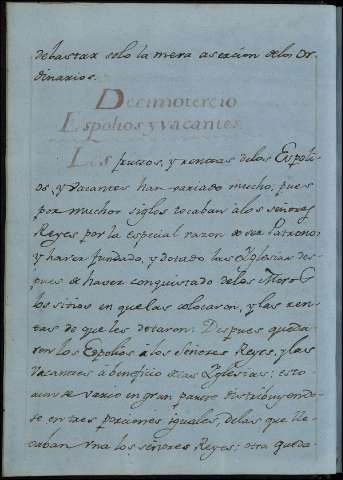 debastar solo la mera asercion delos Or-
dinarios.
Decimotercio
Espolios, y vacantes.
Los frutos, y rentas delos Espoli-
os, y vacantes han variado mucho, pues
por muchos siglos tocaban álos señores
Reyes por la especial razon de ser Patronos
y haver fundado, y dotado las Yglesias des-
pues de haver conquistado delos Moros
los sitios en que las colocaron, y las ren-
tas de que las dotaron: Despues queda-
ron los Espolios á los Señores Reyes, y las
vacantes á beneficio delas Yglesias; esto
aun se varió en gran parte distribuyendo-
se en tres porciones iguales, delas que to-
caban una los señores Reyes; otra queda-